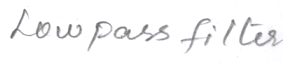 Low pass filter